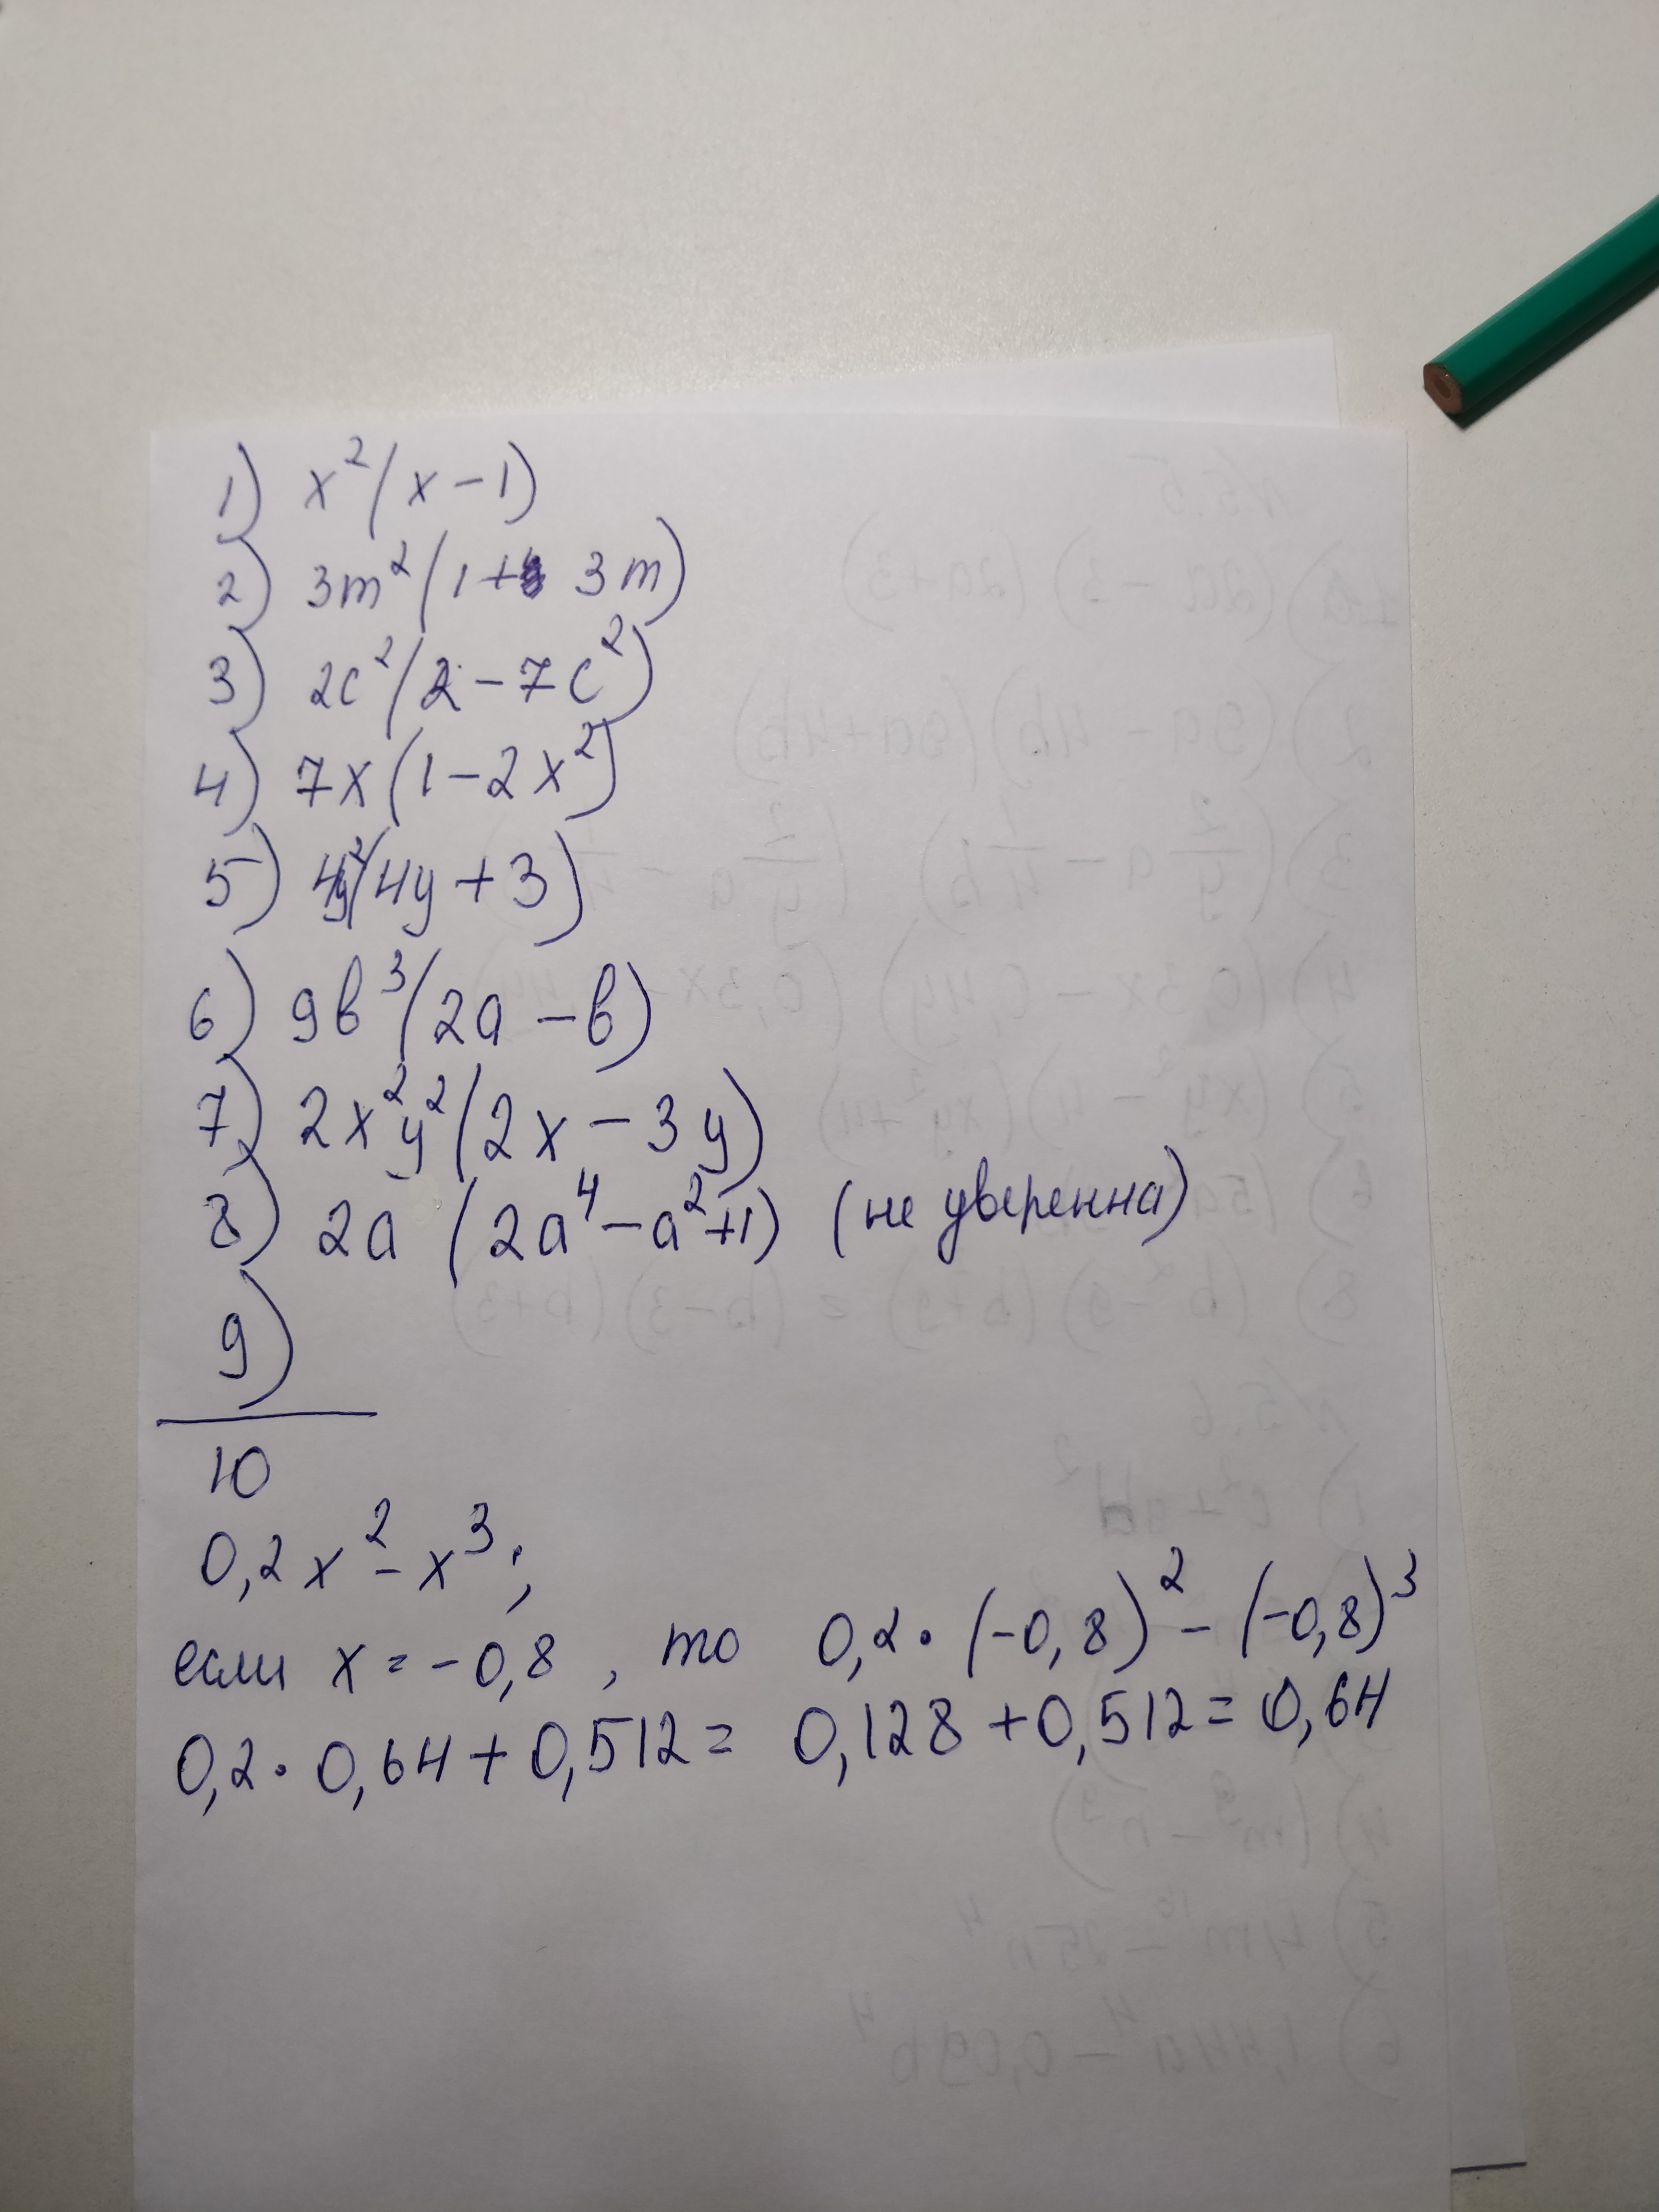 1) x²(x-1)
2) 3m²(1+ 3m)
3) 2c²(2-7c²)
4) 7x(1-2x²)
5) 4y²(4y+3)
6) 9b³(2a-b)
7) 2x²y²(2x-3y)
8) 2a (2a⁴-a²+1) (не уверенна)
9)
10
0,2x²-x³;
если x=-0,8, то 0,2·(-0,8)²-(-0,8)³
0,2·0,64+0,512= 0,128+0,512=0,64